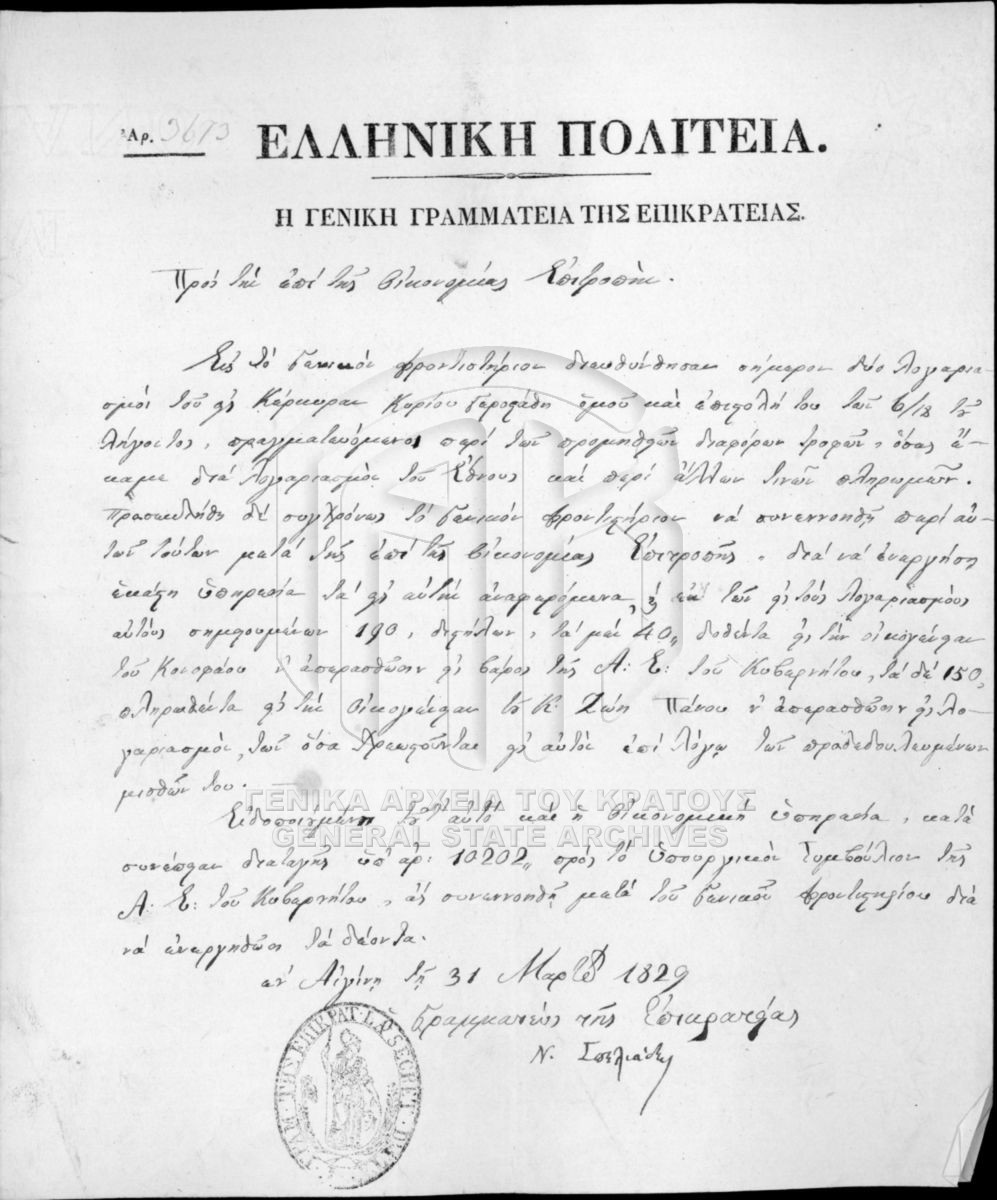 Ἀρ. 3673
ΕΛΛΗΝΙΚΗ ΠΟΛΙΤΕΙΑ.
Η ΓΕΝΙΚΗ ΓΡΑΜΜΑΤΕΙΑ ΤΗΣ ΕΠΙΚΡΑΤΕΙΑΣ.
Πρὸς τὴν ἐπὶ τῆς Οἰκονομίας Ἐπιτροπήν.
Εἰς τὸ Γενικὸν Φροντιστήριον διευθύνθησαν σήμερον δύο λογαρια-
σμοὶ τοῦ εἰς Κέρκυραν Κυρίου Γεροστάθη ὁμοῦ καὶ ἐπιστολή του τῶν 6/18 τοῦ
λήγοντος, πραγματευόμενοι περὶ τῶν προμηθειῶν διαφόρων τροφῶν, ὅσας ἔ-
καμε διὰ λογαριασμὸν τοῦ Ἔθνους καὶ περὶ ἄλλων τινῶν πληρωμῶν.
Προσεκλήθη δὲ συγχρόνως τὸ Γενικὸν Φροντιστήριον νὰ συνεννοηθῇ περὶ αὐ-
τῶν τούτων μετὰ τῆς ἐπὶ τῆς Οἰκονομίας Ἐπιτροπῆς, διὰ νὰ ἐνεργήσῃ
ἑκάστη ὑπηρεσία τὰ εἰς αὐτὴν ἀναφερόμενα, ἐκ τῶν εἰς τοὺς λογαριασμοὺς
αὐτοὺς σημειουμένων 190, διστήλων, τὰ μὲν 40,, δοθέντα εἰς τὴν οἰκογένειαν
τοῦ ν' ἀπερασθῶσιν εἰς βάρος τῆς Α: Ε: τοῦ Κυβερνήτου, τὰ δὲ 150,
πληρωθέντα εἰς τὴν οἰκογένειαν τοῦ Κ: Ζώη Πάνου ν' ἀπερασθῶσιν εἰς λο-
γαριασμὸν τῶν ὅσα χρεωστοῦνται εἰς αὐτὸν ἐπὶ λόγῳ τῶν προδεδουλευμένων
μισθῶν του.
Εἰδοποιημένη τοῦτ' αὐτὸ καὶ ἡ Οἰκονομικὴ ὑπηρεσία, κατὰ
συνέπειαν διαταγῆς ὑπ' ἀρ: 10202,, πρὸς τὸ Ὑπουργικὸν Συμβούλιον τῆς
Α: Ε: τοῦ Κυβερνήτου, ἂς συνεννοηθῇ μετὰ τοῦ Γενικοῦ Φροντιστηρίου διὰ
νὰ ἐνεργηθῶσι τὰ δέοντα.
ἐν Αἰγίνῃ τῇ 31 Μαρτίου 1829
Ὁ Γραμματεὺς τῆς Ἐπικρατείας
Ν. Σπηλιάδης
ΓΡΑΜ. ΤΗΣ ΕΠΙΚΡΑΤ.
SECRET.
ΓΕΝΙΚΑ ΑΡΧΕΙΑ ΤΟΥ ΚΡΑΤΟΥΣ
GENERAL STATE ARCHIVES